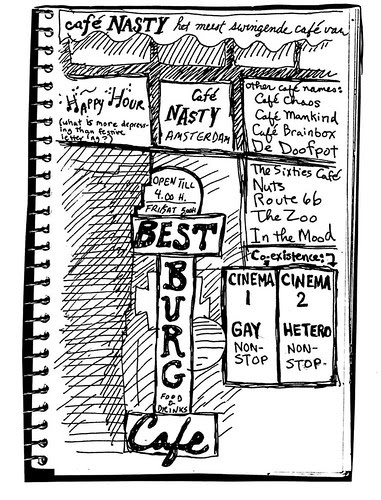 café NASTY het meest swingende café van
HAPPY HOUR
(what is more depress-
ing than festive
lettering?)
Café
NASTY
AMSTERDAM
other café names:
Café Chaos
Café Mankind
Café Brainbox
De Doofpot
The Sixties Café
Nuts
Route 66
The Zoo
In the Mood
Co-existence:
OPEN TILL
4.00 H.
FRI/SAT 5.00H
BEST
BURG
FOOD
&
DRINKS
Cafe
CINEMA
1
GAY
NON-
STOP
CINEMA
2
HETERO
NON-
STOP-